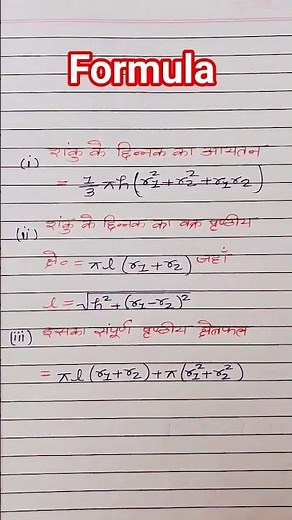 Formula
(i) शंकु के छिन्नक का आयतन
= 1/3 πh(r₁²+r₂²+r₁r₂)
(ii) शंकु के छिन्नक का वक्र पृष्ठीय
क्षे० = πl(r₁+r₂) जहाँ
l = √h²+(r₁-r₂)²
(iii) इसका संपूर्ण पृष्ठीय क्षेत्रफल
= πl(r₁+r₂)+π(r₁²+r₂²)